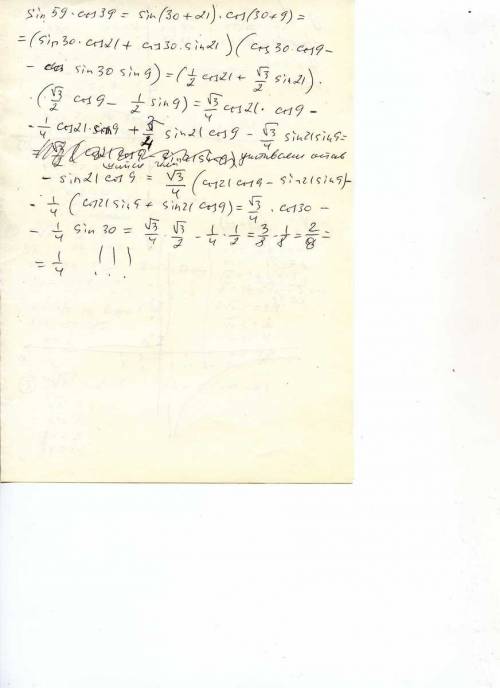 sin 59·cos 39 = sin(30+21)·cos(30+9) =
= (sin30·cos21 + cos30·sin21)(cos30·cos9 –
– sin30 sin9) = (1/2 cos21 + √3/2 sin21)·
·(√3/2 cos9 – 1/2 sin9) = √3/4 cos21·cos9 –
– 1/4 cos21·sin9 + 3/4 sin21 cos9 – √3/4 sin21 sin9 =
– sin21 cos9 = √3/4 (cos21 cos9 – sin21 sin9) –
– 1/4 (cos21 sin9 + sin21 cos9) = √3/4 · cos30 –
– 1/4 sin30 = √3/4 · √3/2 – 1/4 · 1/2 = 3/8 – 1/8 = 2/8 =
= 1/4 !!!